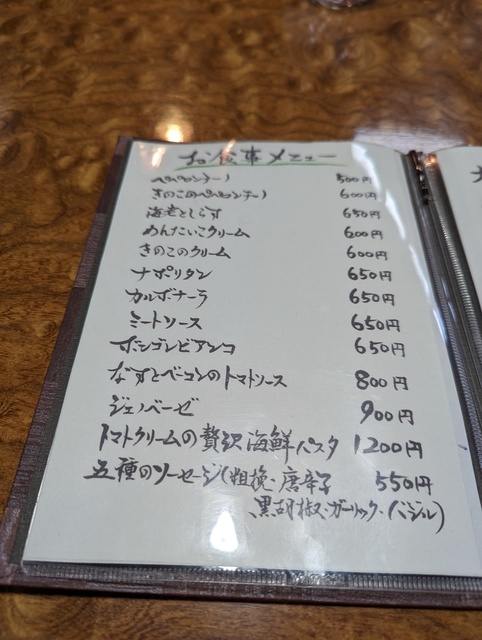 お食事メニュー
ペペロンチーノ 500円
きのこのペペロンチーノ 600円
海老としらす 650円
めんたいこクリーム 600円
きのこのクリーム 600円
ナポリタン 650円
カルボナーラ 650円
ミートソース 650円
ボンゴレビアンコ 650円
なすとベーコンのトマトソース 800円
ジェノベーゼ 900円
トマトクリームの贅沢海鮮パスタ 1200円
五種のソーセージ(粗挽・唐辛子 550円
黒胡椒・ガーリック・バジル)